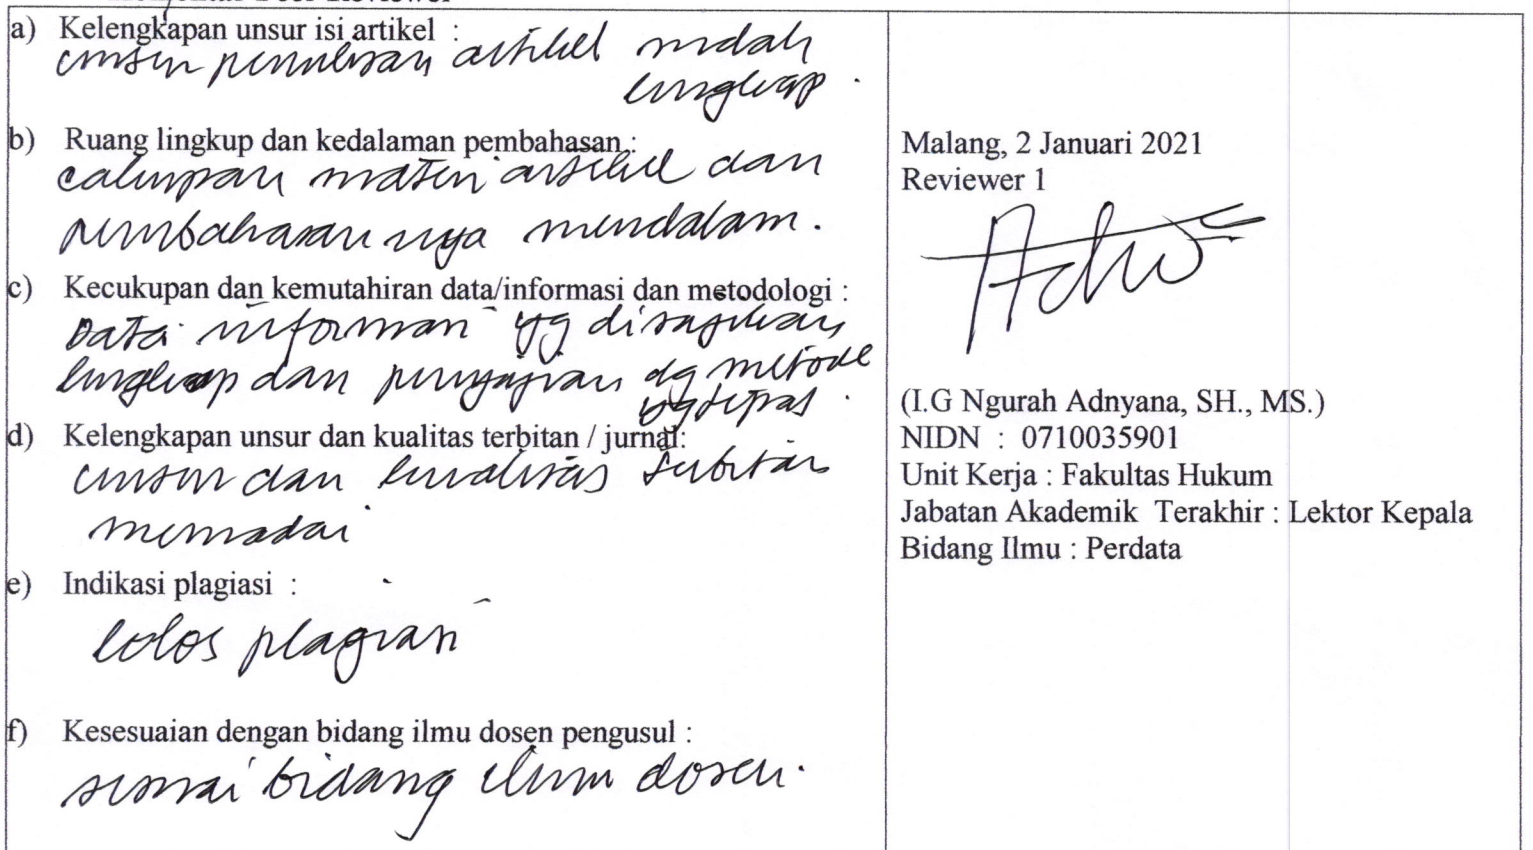 a) Kelengkapan unsur isi artikel :
unsur penulisan artikel sudah
lengkap.
b) Ruang lingkup dan kedalaman pembahasan :
cakupan materi artikel dan
pembahasan nya mendalam.
c) Kecukupan dan kemutahiran data/informasi dan metodologi :
Data informasi yg disajikan
lengkap dan penyajian dg metode
yg tepat.
d) Kelengkapan unsur dan kualitas terbitan / jurnal:
unsur dan kualitas terbitan
memadai
e) Indikasi plagiasi :
lolos plagiasi
f) Kesesuaian dengan bidang ilmu dosen pengusul :
sesuai bidang ilmu dosen.
Malang, 2 Januari 2021
Reviewer 1
(I.G Ngurah Adnyana, SH., MS.)
NIDN : 0710035901
Unit Kerja : Fakultas Hukum
Jabatan Akademik Terakhir : Lektor Kepala
Bidang Ilmu : Perdata